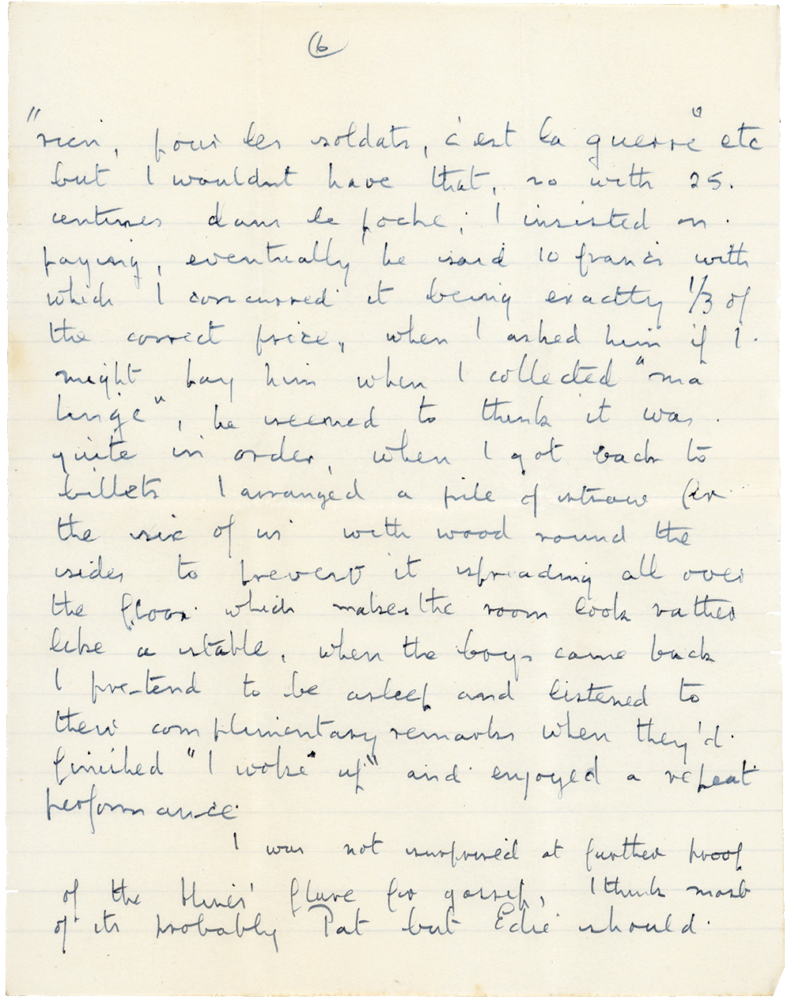 6
"rien, pour les soldats, c'est la guerre" etc
but I wouldnt have that, so with 25.
centimes dans le poche; I insisted on.
paying, eventually he said 10 francs with
which I concurred it being exactly 1/3 of
the correct price, when I asked him if I.
might pay him when I collected "ma
linge", he seemed to think it was.
quite in order, when I got back to
billets I arranged a pile of straw for
the six of us with wood round the
sides to prevent it spreading all over
the floor which makes the room look rather
like a stable, when the boys came back
I pre-tend to be asleep and listened to
their complimentary remarks when they'd.
finished "I woke up" and enjoyed a repeat
performance.
I was not surprised at further proof
of the Hines' flare for gossip, I think most
of its probably Pat but Edie should.